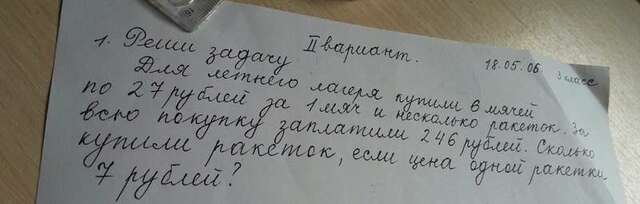 II вариант. 18.05.06 3 класс
1. Реши задачу
Для летнего лагеря купили 6 мячей
по 27 рублей за 1 мяч и несколько ракеток. За
всю покупку заплатили 246 рублей. Сколько
купили ракеток, если цена одной ракетки
7 рублей?